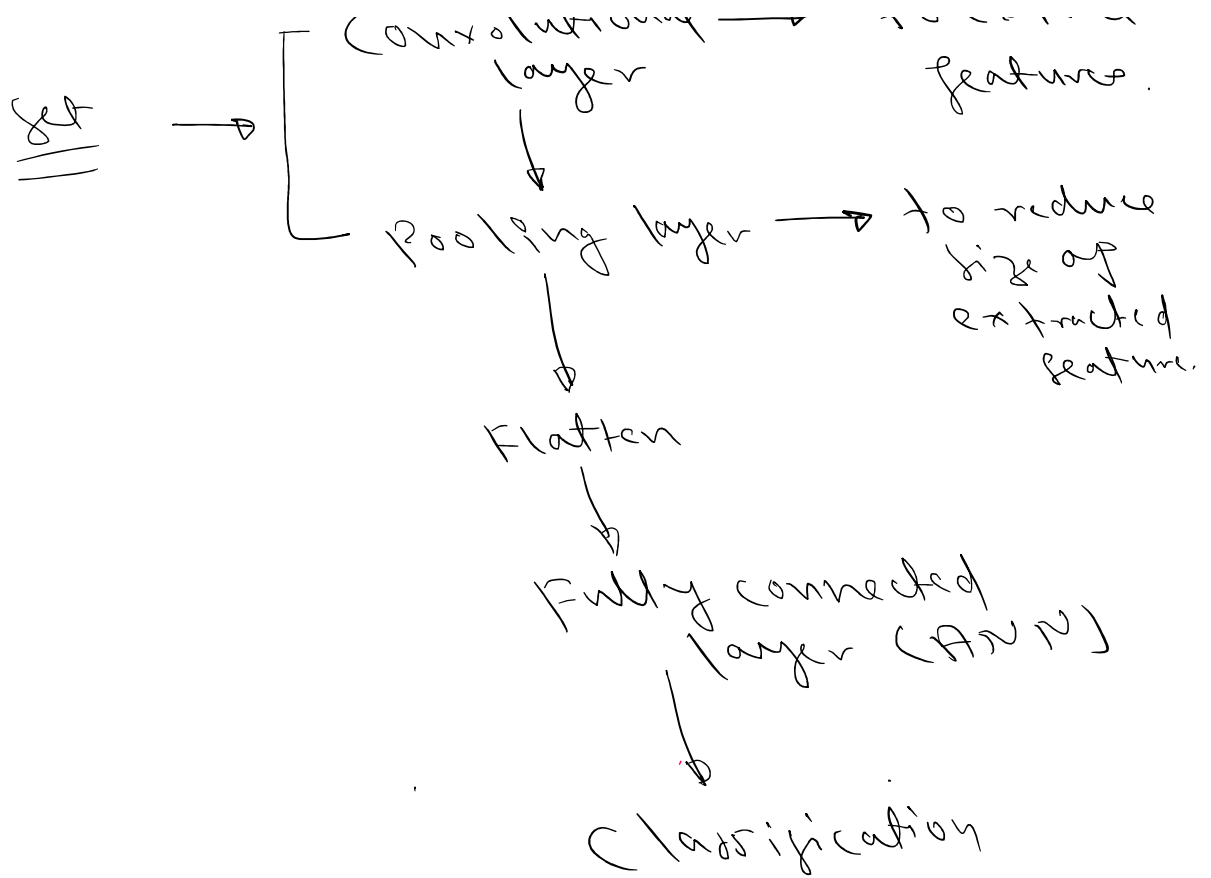 Convolutional
layer
features.
Set
Pooling layer
to reduce
size of
extracted
feature.
Flatten
Fully connected
layer (ANN)
Classification